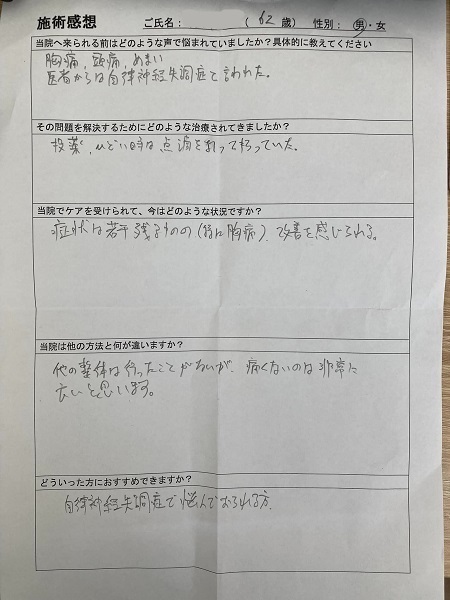 施術感想 ご氏名： （ 62 歳） 性別：男・女
当院へ来られる前はどのような声で悩まれていましたか？具体的に教えてください
胸痛，頭痛，めまい
医者からは自律神経失調症と言われた。
その問題を解決するためにどのような治療されてきましたか？
投薬，ひどい時は点滴を打って
当院でケアを受けられて、今はどのような状況ですか？
症状は若干残るものの（特に胸痛）、改善を感じられる。
当院は他の方法と何が違いますか？
他の整体は行ったことがないが、痛くないのは非常に
良いと思います。
どういった方におすすめできますか？
自律神経失調症で悩んでおられる方